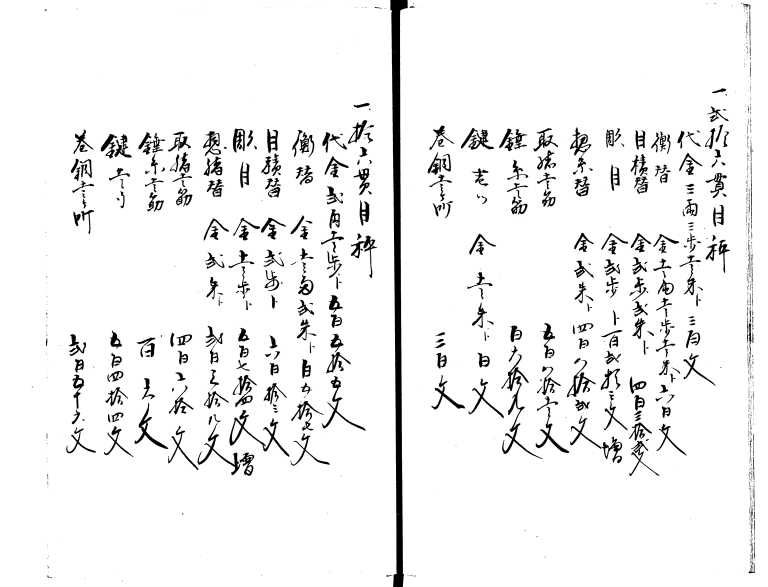 一弐拾六貫目秤
代金三両三歩壱朱ト三百文
衡替 金壱両壱歩壱朱ト六百文
目積替 金弐歩弐朱ト 四百三拾弐文
彫目 金弐歩ト百弐拾三文増
懸糸替 金弐朱ト四百八拾弐文
取緒壱筋 五百八拾壱文
錘糸壱筋 百六拾九文
鍵 壱ツ 金壱朱ト百文
巻銅壱ヶ所 三百文
一拾六貫目秤
代金弐両壱歩ト五百五拾五文
衡替 金壱両弐朱ト百五拾七文
目積替 金弐歩ト 六百拾三文
彫目 金壱歩ト 五百七拾四文増
懸緒替 金弐朱ト 弐百三拾九文
取緒壱筋 四百六拾文
錘糸壱筋 百六文
鍵壱ツ 五百四拾四文
巻銅壱ヶ所 弐百五十六文